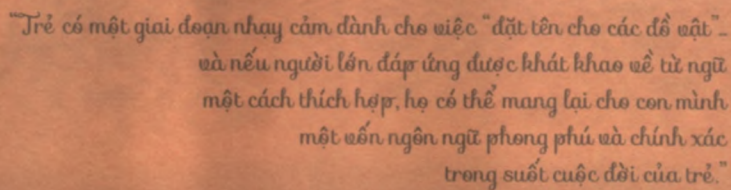 “Trẻ có một giai đoạn nhạy cảm dành cho việc “đặt tên cho các đồ vật”...
và nếu người lớn đáp ứng được khát khao về từ ngữ
một cách thích hợp, họ có thể mang lại cho con mình
một vốn ngôn ngữ phong phú và chính xác
trong suốt cuộc đời của trẻ.”